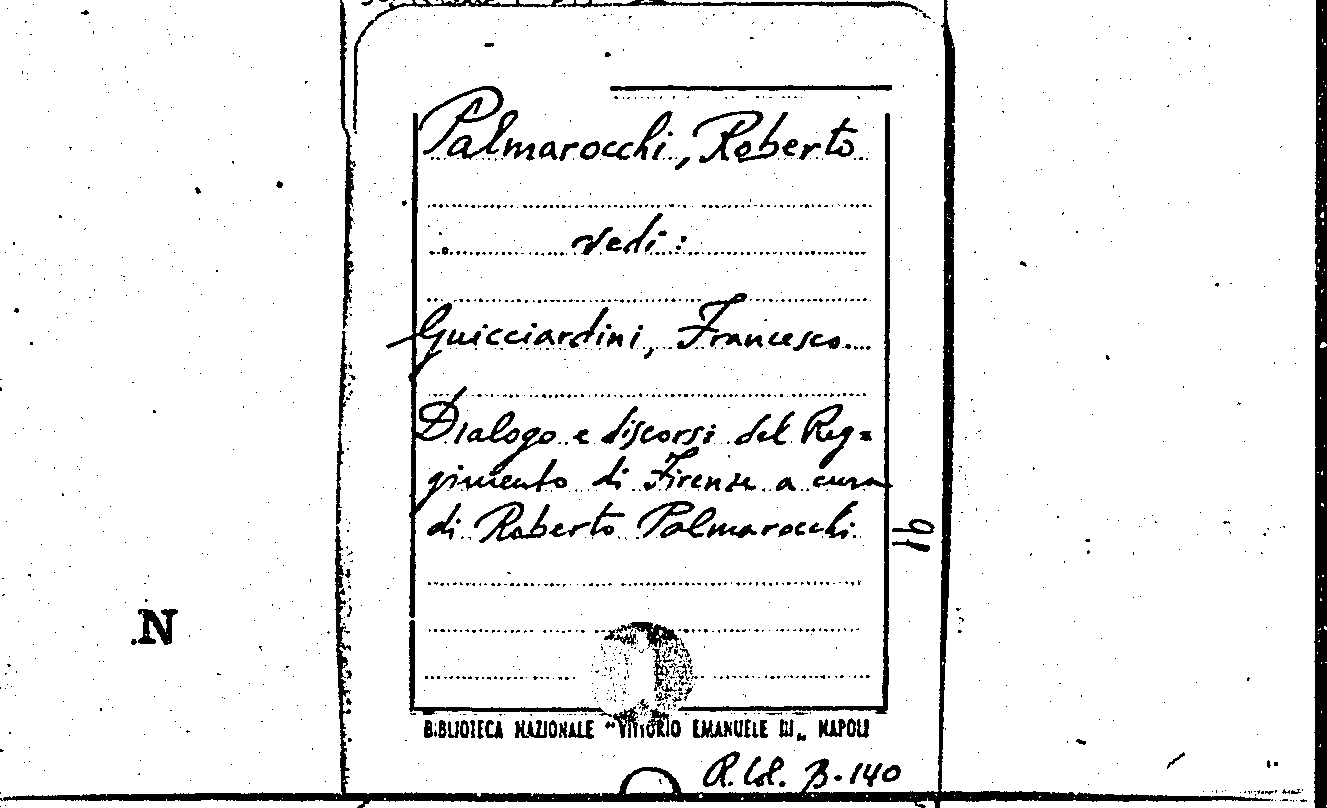 Palmarocchi, Roberto
vedi:
Guicciardini, Francesco
Dialogo e discorsi del Reg=
gimento di Firenze a cura
di Roberto Palmarocchi
16
N
BIBLIOTECA NAZIONALE "VITTORIO EMANUELE III„ NAPOLI
R. Col. B. 140